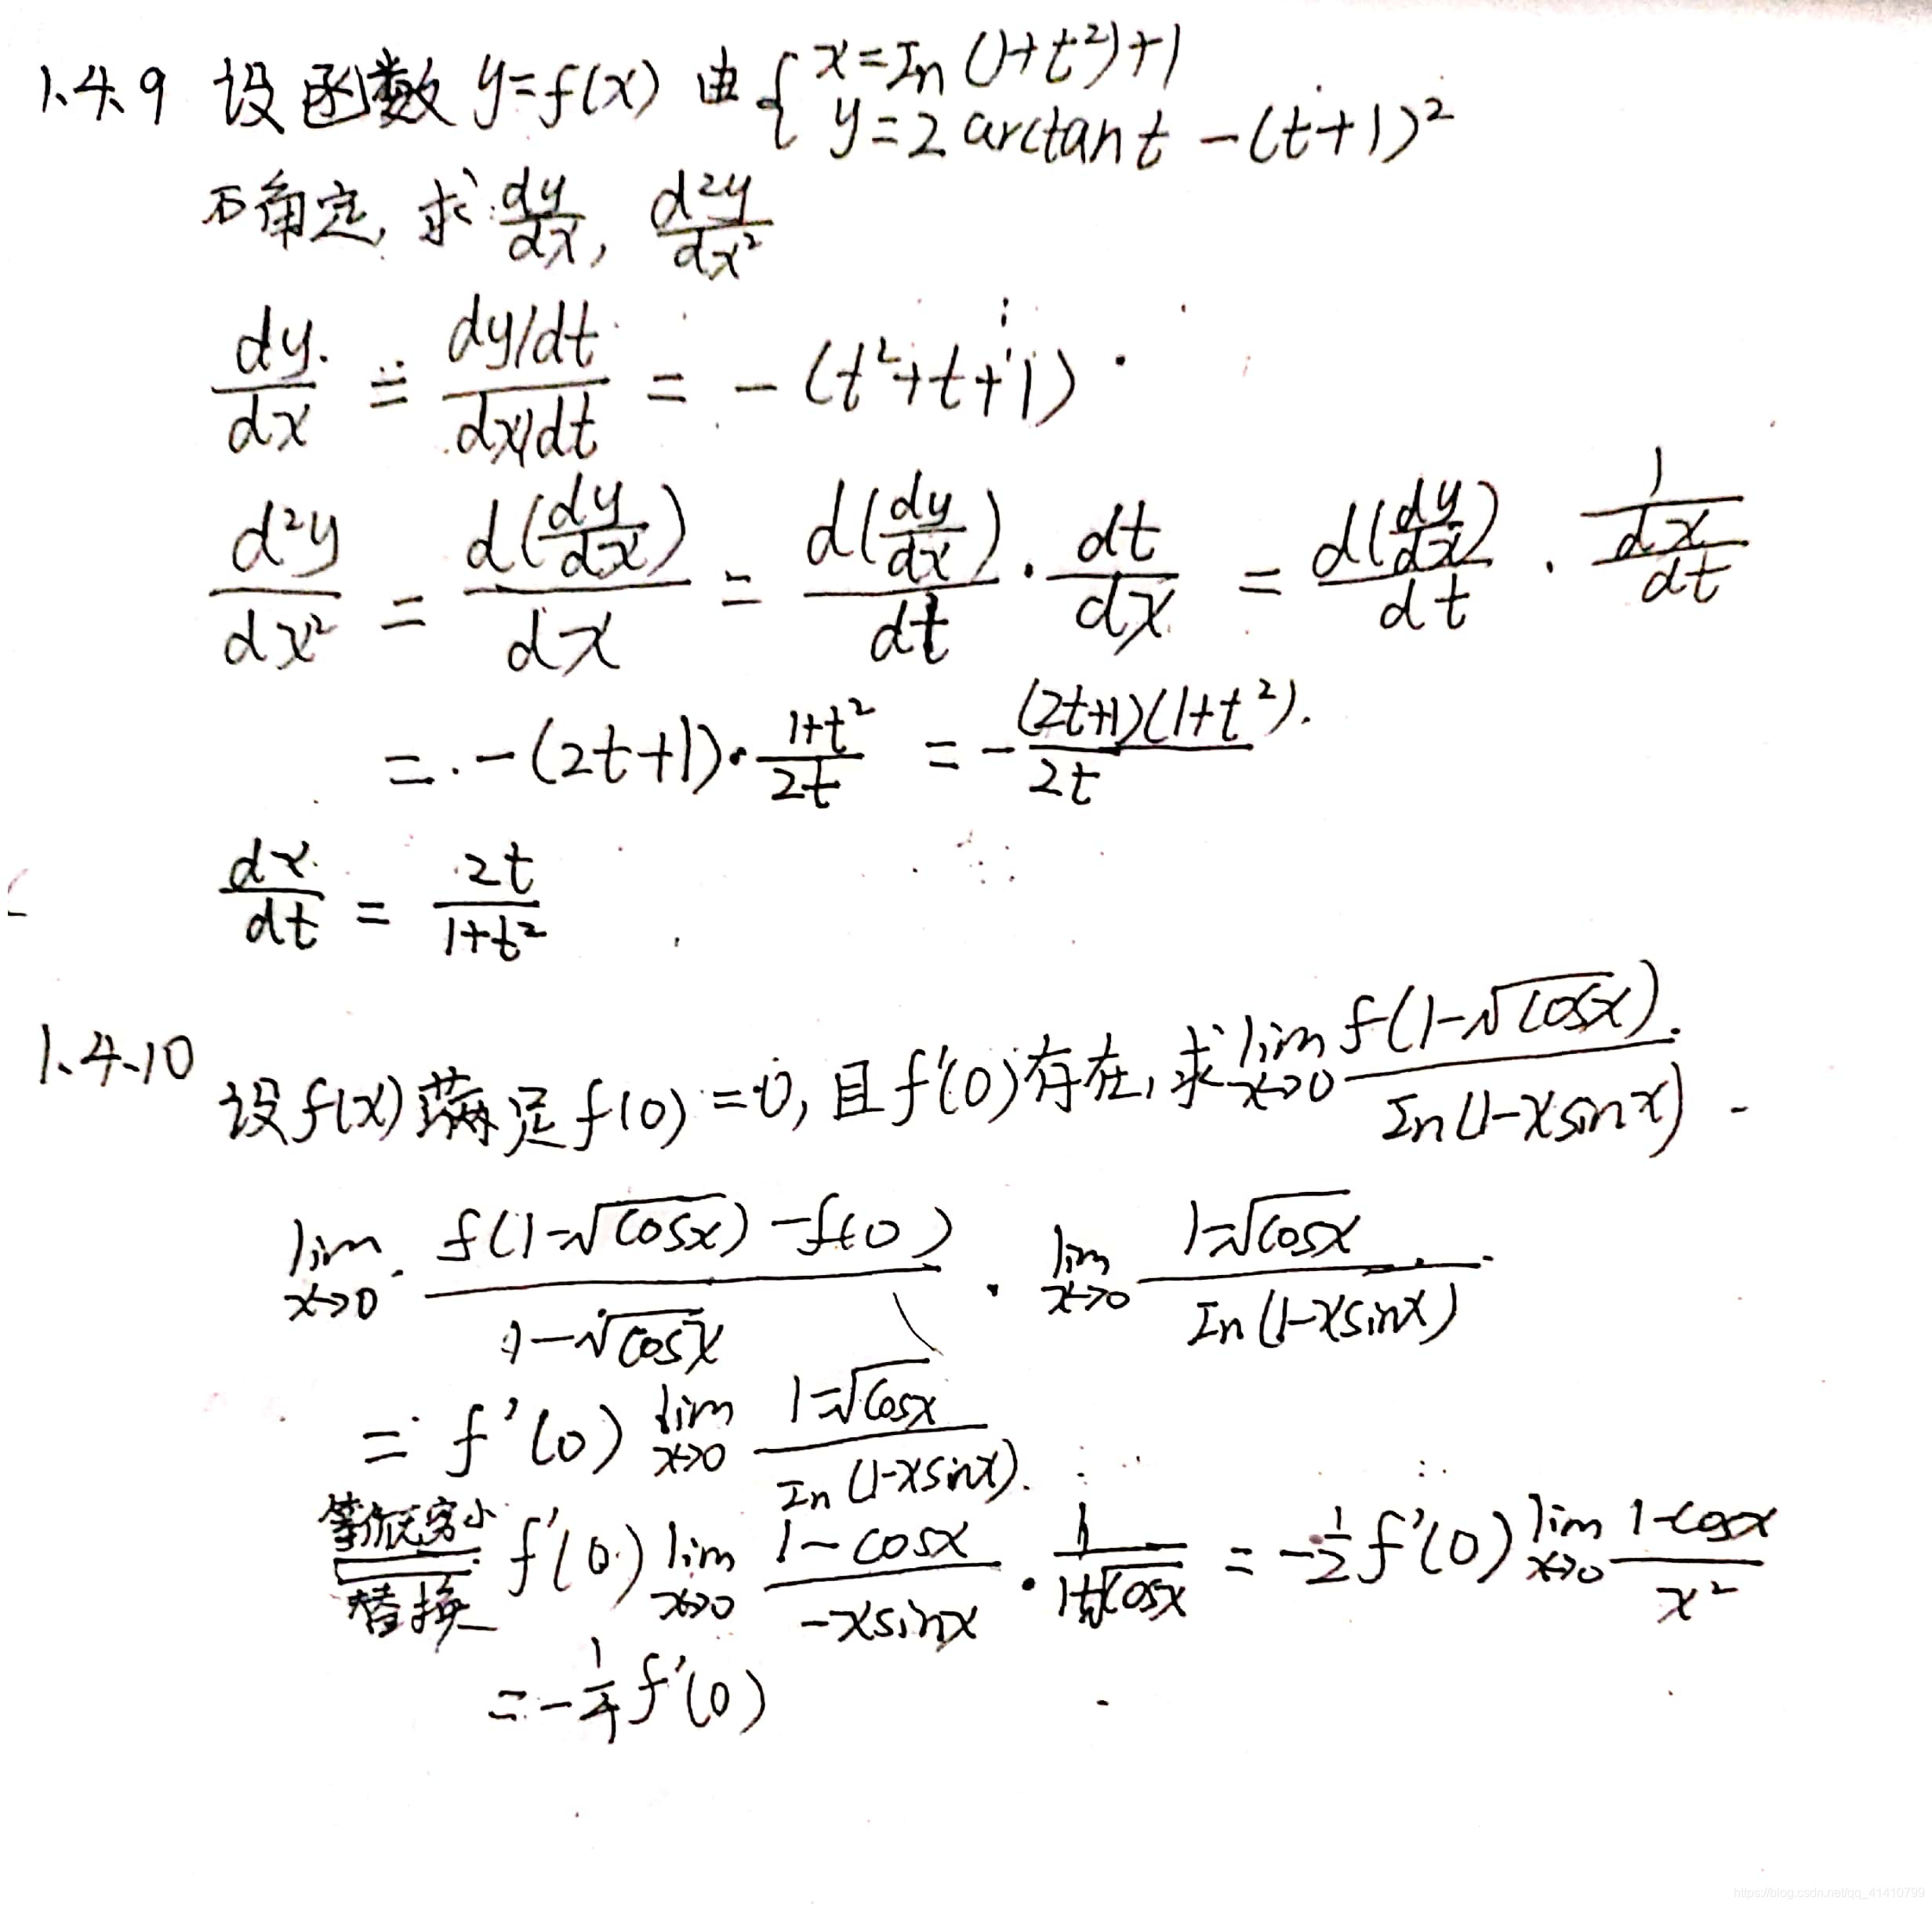 1.4.9 设函数 y=f(x) 由 { x=In(1+t²)+1
y=2 arctan t -(t+1)²
确定, 求 dy/dx, d²y/dx²
dy/dx = (dy/dt)/(dx/dt) = -(t²+t+1)
d²y/dx² = d(dy/dx)/dx = d(dy/dx)/dt · dt/dx = d(dy/dx)/dt · 1/(dx/dt)
= -(2t+1)· (1+t²)/2t = - (2t+1)(1+t²)/2t
dx/dt = 2t/(1+t²)
1.4.10 设f(x)满足f(0)=0, 且f'(0)存在, 求 lim x→0 f(1-√cosx)/In(1-xsinx)
lim x→0 (f(1-√cosx)-f(0))/(1-√cosx) · lim x→0 (1-√cosx)/In(1-xsinx)
= f'(0) lim x→0 (1-√cosx)/In(1-xsinx)
等价无穷小替换 f'(0) lim x→0 (1-cosx)/(-xsinx) · 1/(1+√cosx) = -1/2 f'(0) lim x→0 (1-cosx)/x²
= -1/4 f'(0)
https://blog.csdn.net/qq_41410799